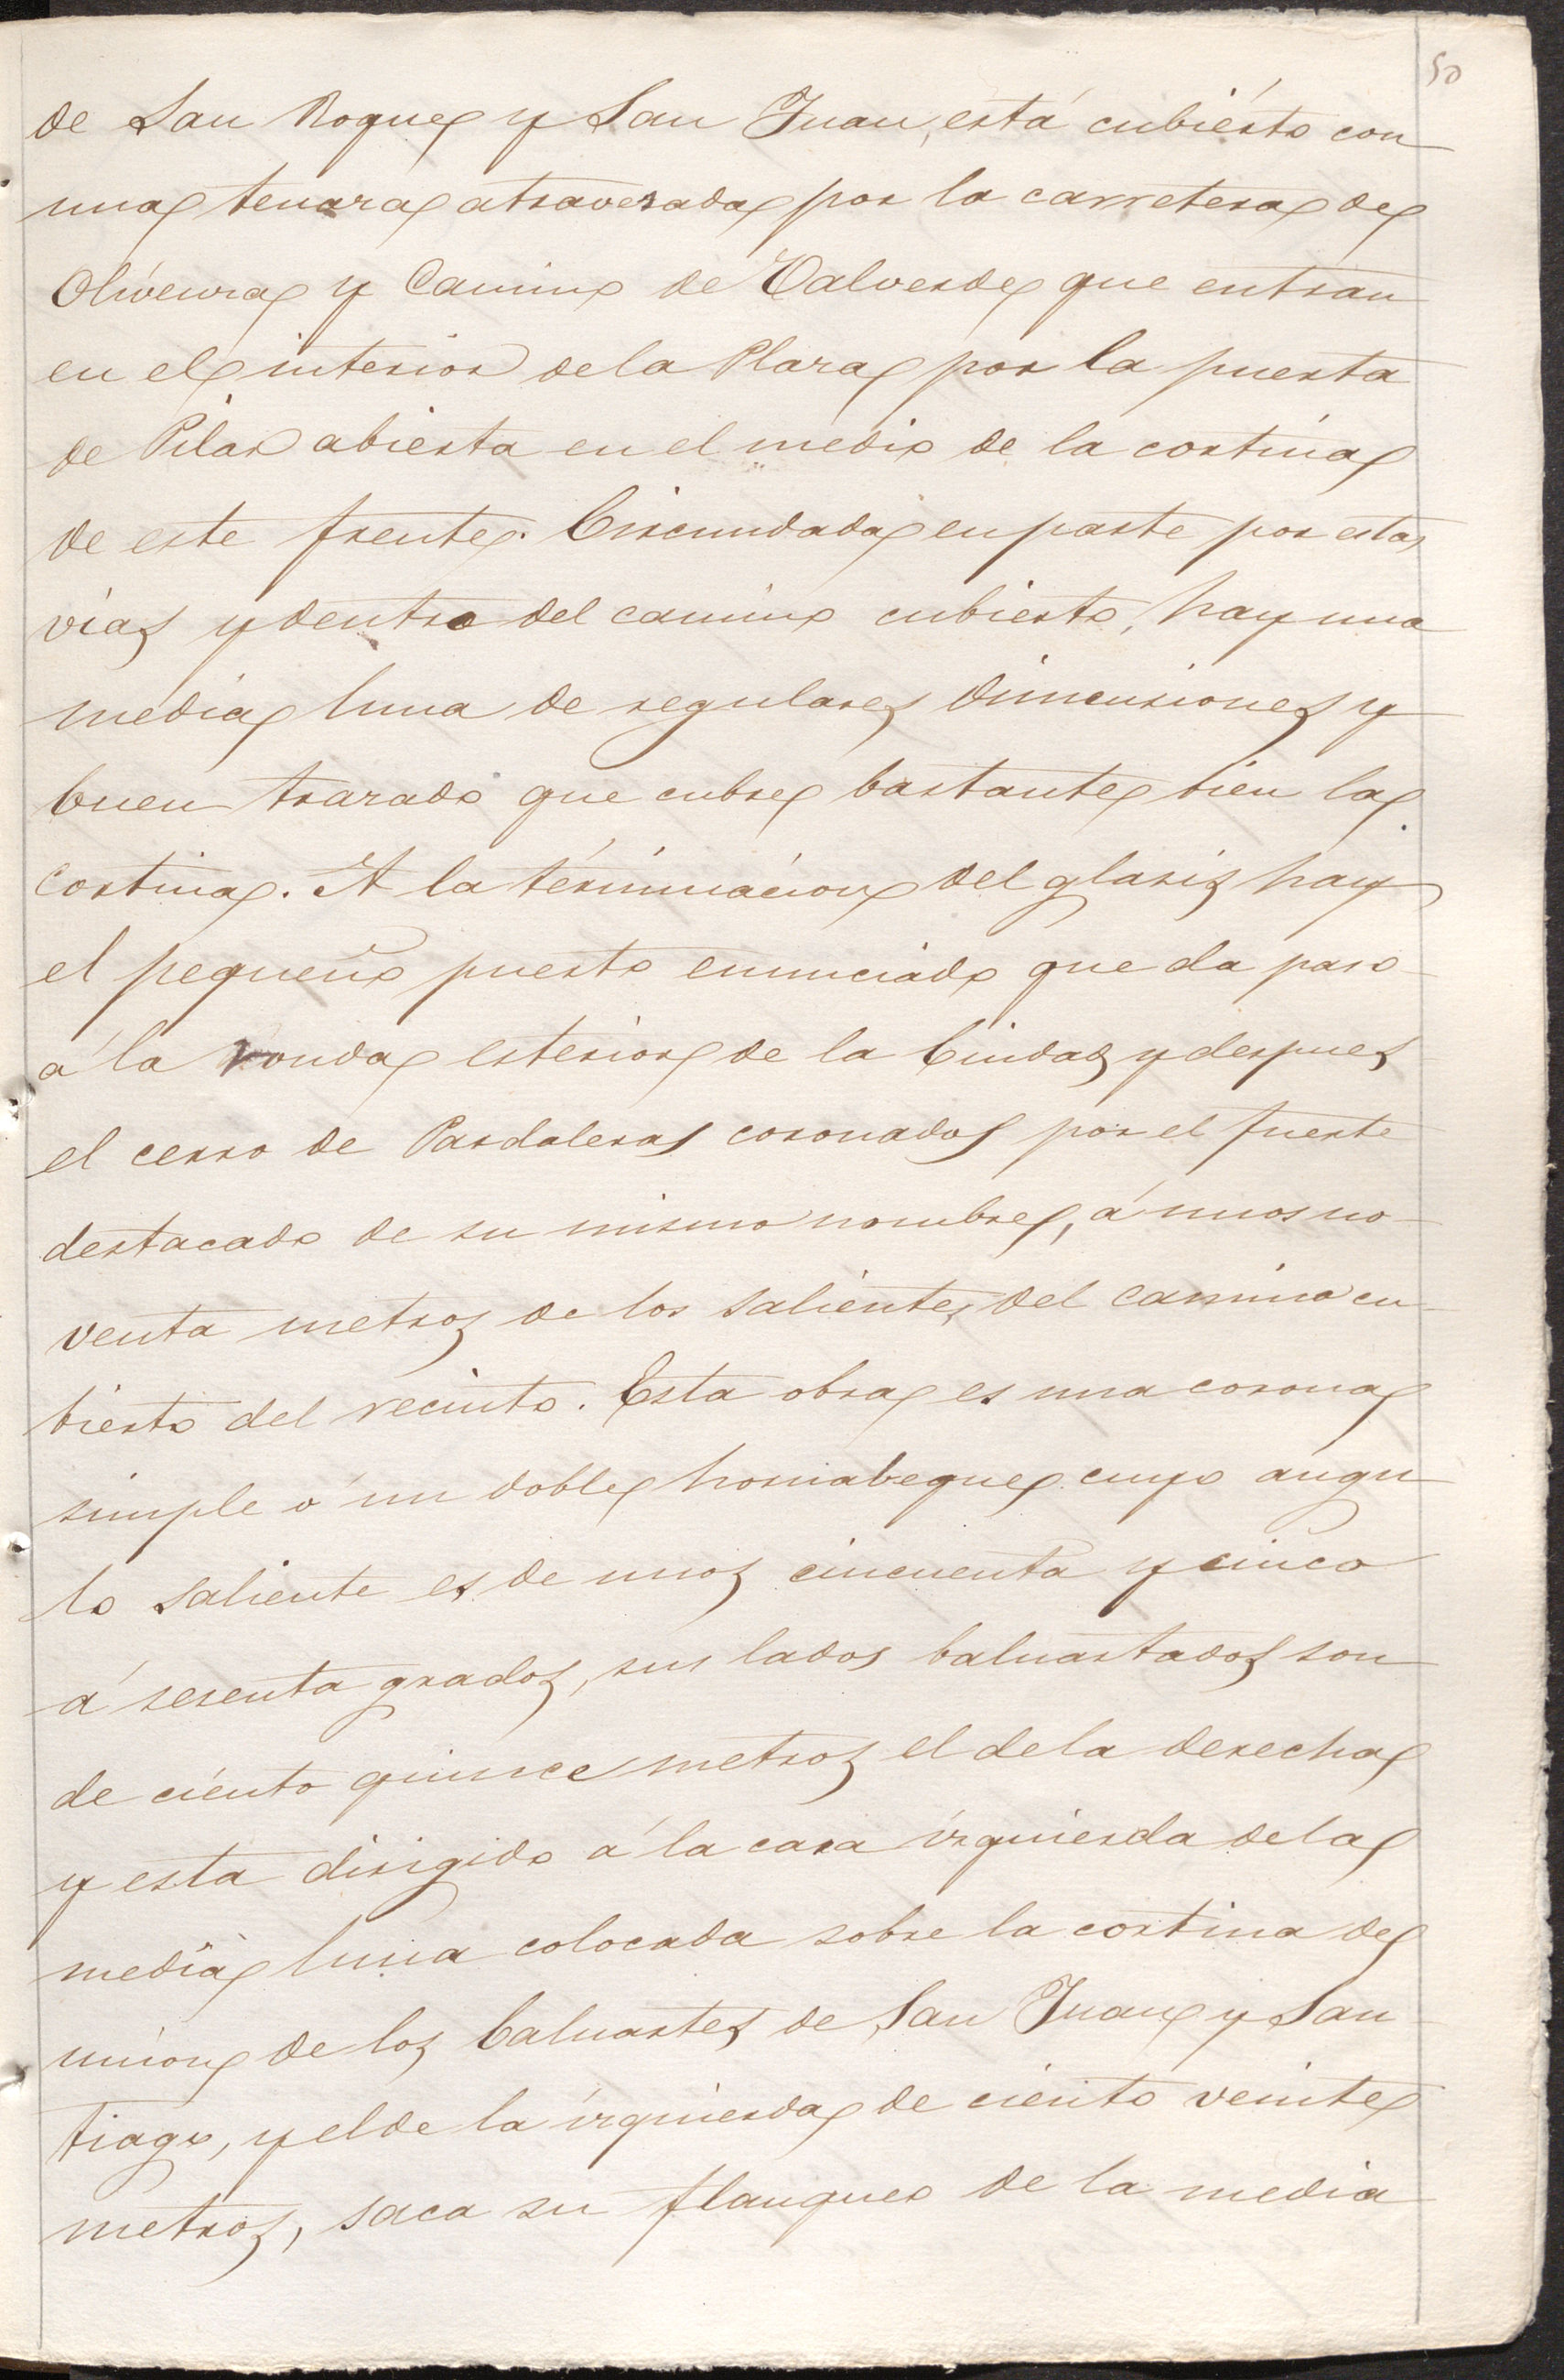 50
de San Roque y San Juan, está cubierto con
una tenaza atravesada por la carretera de
Olivenza y Camino de Valverde que entran
en el interior de la Plaza por la puerta
de Pilar abierta en el medio de la cortina
de este frente. Circundada en parte por estas
vías y dentro del camino cubierto, hay una
media luna de regulares dimensiones y
buen trazado que cubre bastante bien la
cortina. A la terminación del glasis hay
el pequeño puesto enunciado que da paso
á la ronda esterior de la Ciudad y despues
el cerro de Pardaleras coronados por el fuerte
destacado de su mismo nombre, á unos no-
venta metros de los salientes del camino cu-
bierto del recinto. Esta obra es una corona
simple ó un doble hornabeque cuyo angu
lo saliente es de unos cincuenta y cinco
á sesenta grados, sus lados baluartados son
de ciento quince metros el de la derecha
y esta dirigido á la cara izquierda de la
media luna colocada sobre la cortina de
unión de los baluartes de San Juan y San
tiago, y el de la izquierda de ciento veinte
metros, saca su flanqueo de la media